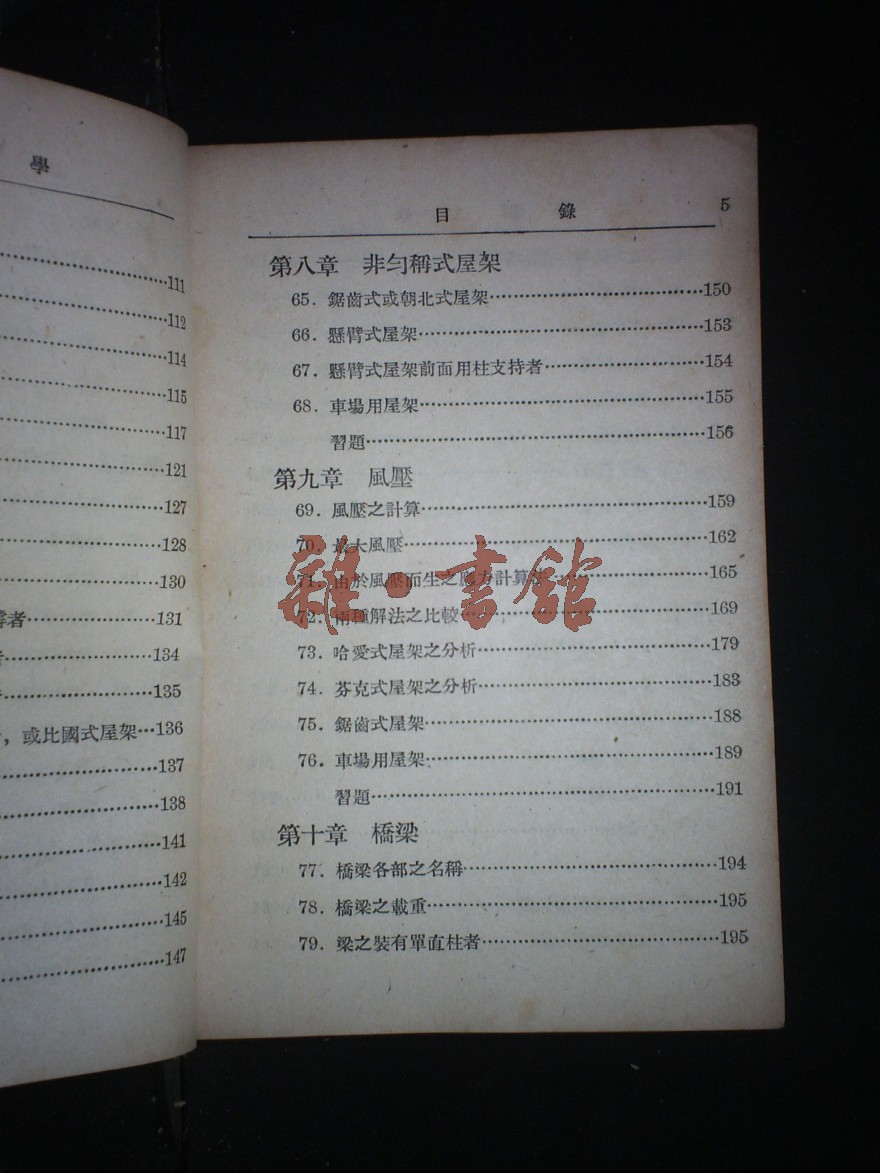 學
111
112
114
115
117
121
127
128
130
者…131
134
135
，或比國式屋架…136
137
138
141
142
145
147
目 錄 5
第八章 非勻稱式屋架
65．鋸齒式或朝北式屋架…150
66．懸臂式屋架…153
67．懸臂式屋架前面用柱支持者…154
68．車場用屋架…155
習題…156
第九章 風壓
69．風壓之計算…159
70．最大風壓…162
71．由於風壓而生之應力計算法…165
72．兩種解法之比較…169
73．哈愛式屋架之分析…179
74．芬克式屋架之分析…183
75．鋸齒式屋架…188
76．車場用屋架…189
習題…191
第十章 橋梁
77．橋梁各部之名稱…194
78．橋梁之載重…195
79．梁之裝有單直柱者…195
雜·書館